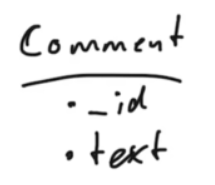 Comment
· _id
· text